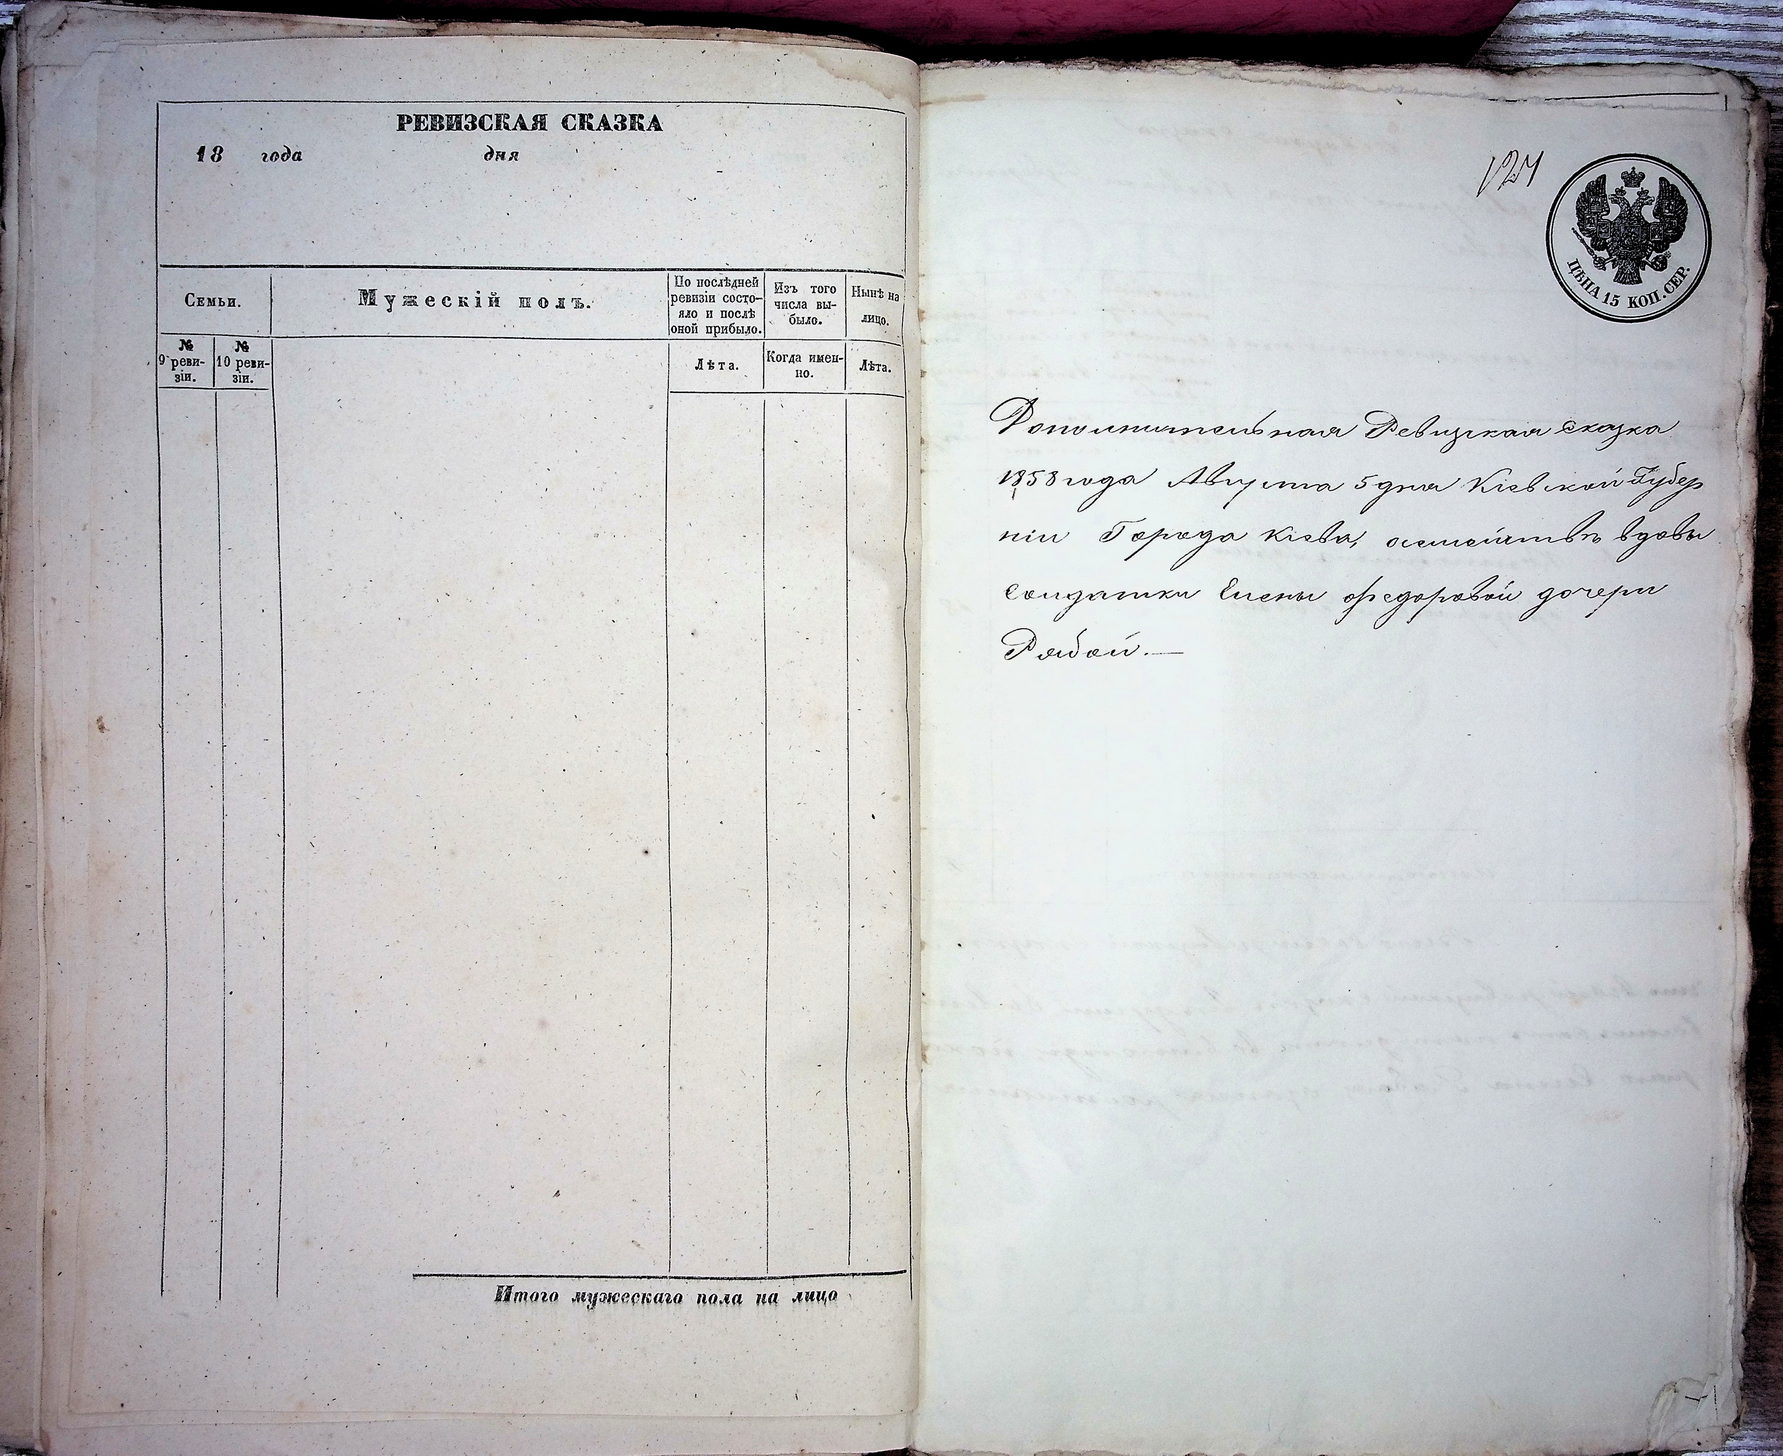 РЕВИЗСКАЯ СКАЗКА
18 года дня
Семьи.
Мужескій полъ.
По послѣдней
ревизіи состо-
яло и послѣ
оной прибыло.
Изъ того
числа вы-
было.
Нынѣ на
лицо.
№
9 реви-
зіи.
№
10 реви-
зіи.
Лѣта.
Когда имен-
но.
Лѣта.
Итого мужескаго пола на лицо
124
ЦѢНА 15 КОП. СЕР.
Дополнительная Ревизская сказка
1858 года Августа 5 дня Кіевской Губер
ніи Города Кіева, о семействѣ вдовы
солдатки Елены Федоровой дочери
Рябой.—